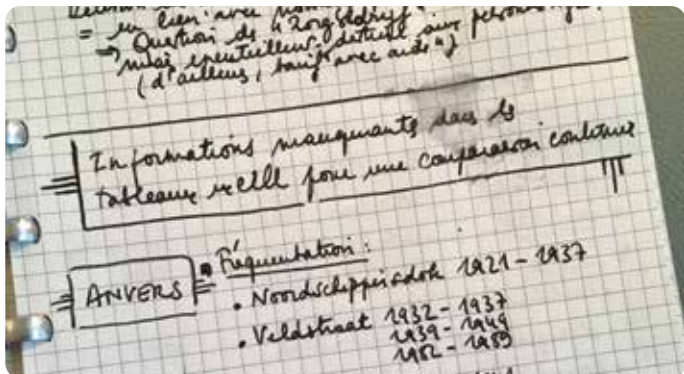 = en lien avec
→ Question de "Zorgbedrijf"
mais éventuellem. destiné aux personnes
(d'ailleurs, tarif "avec aide")
Informations manquantes dans les
tableaux pour une comparaison continue
ANVERS
Fréquentation :
• Noordschippersdok 1921 - 1937
• Veldstraat 1932 - 1937
1939 - 1949